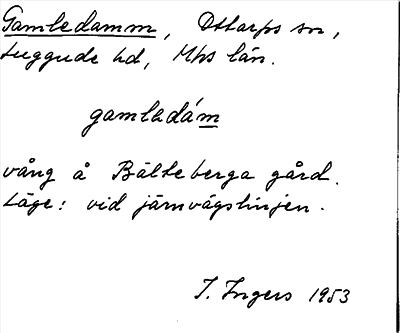 Gamledamm, Ottarps sn,
Luggude hd, Mhs län.
gamladám
vång å Bälteberga gård.
Läge: vid järnvägslinjen.
I. Ingers 1953